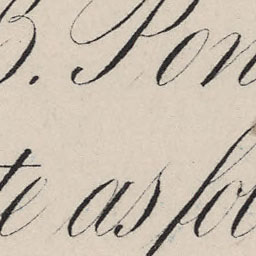 B. Pon
te as fol